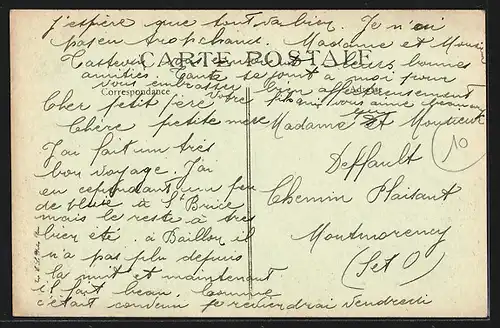 j'espère que tout va bien. Je n'ai
pas eu trop chaud. Madame et Monsieur
CARTE POSTALE
leurs bonnes
amitiés. se joint à moi pour
vous embrasser bien affectueusement
Correspondance
Adresse
Cher petit père
votre qui vous aime beaucoup
Chère petite mère
J'ai fait un très
bon voyage. J'ai
eu cependant un peu
de pluie à St Brice
mais le reste a très
bien été. à Baillon il
n'a pas plu depuis
la nuit et maintenant
il fait beau. Comme
c'était convenu je reviendrai Vendredi
Madame et Monsieur
Deffault
Chemin Plaisant
Montmorency
(S et O)
10